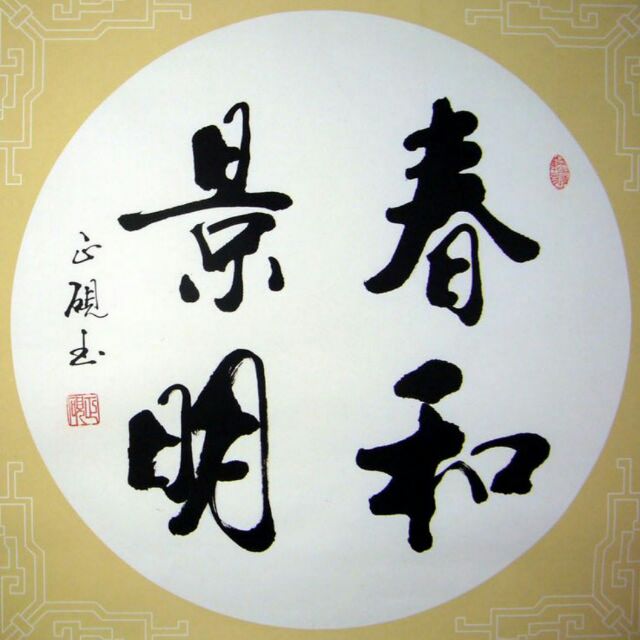 春和
景明
正硯书